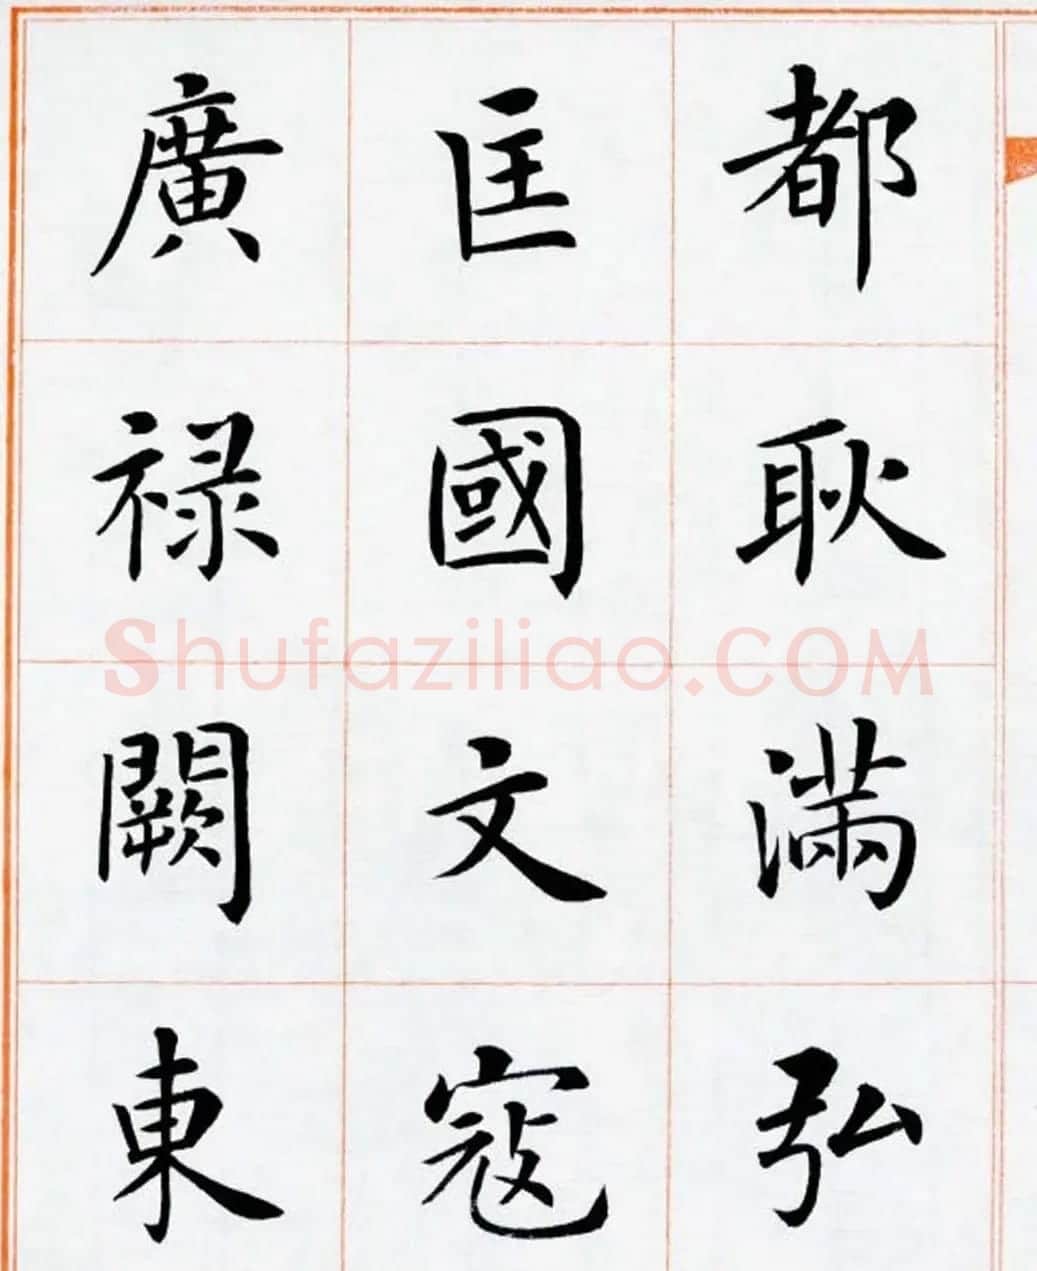 都耿满弘
匡國文寇
廣禄闕東
Shufaziliao.COM